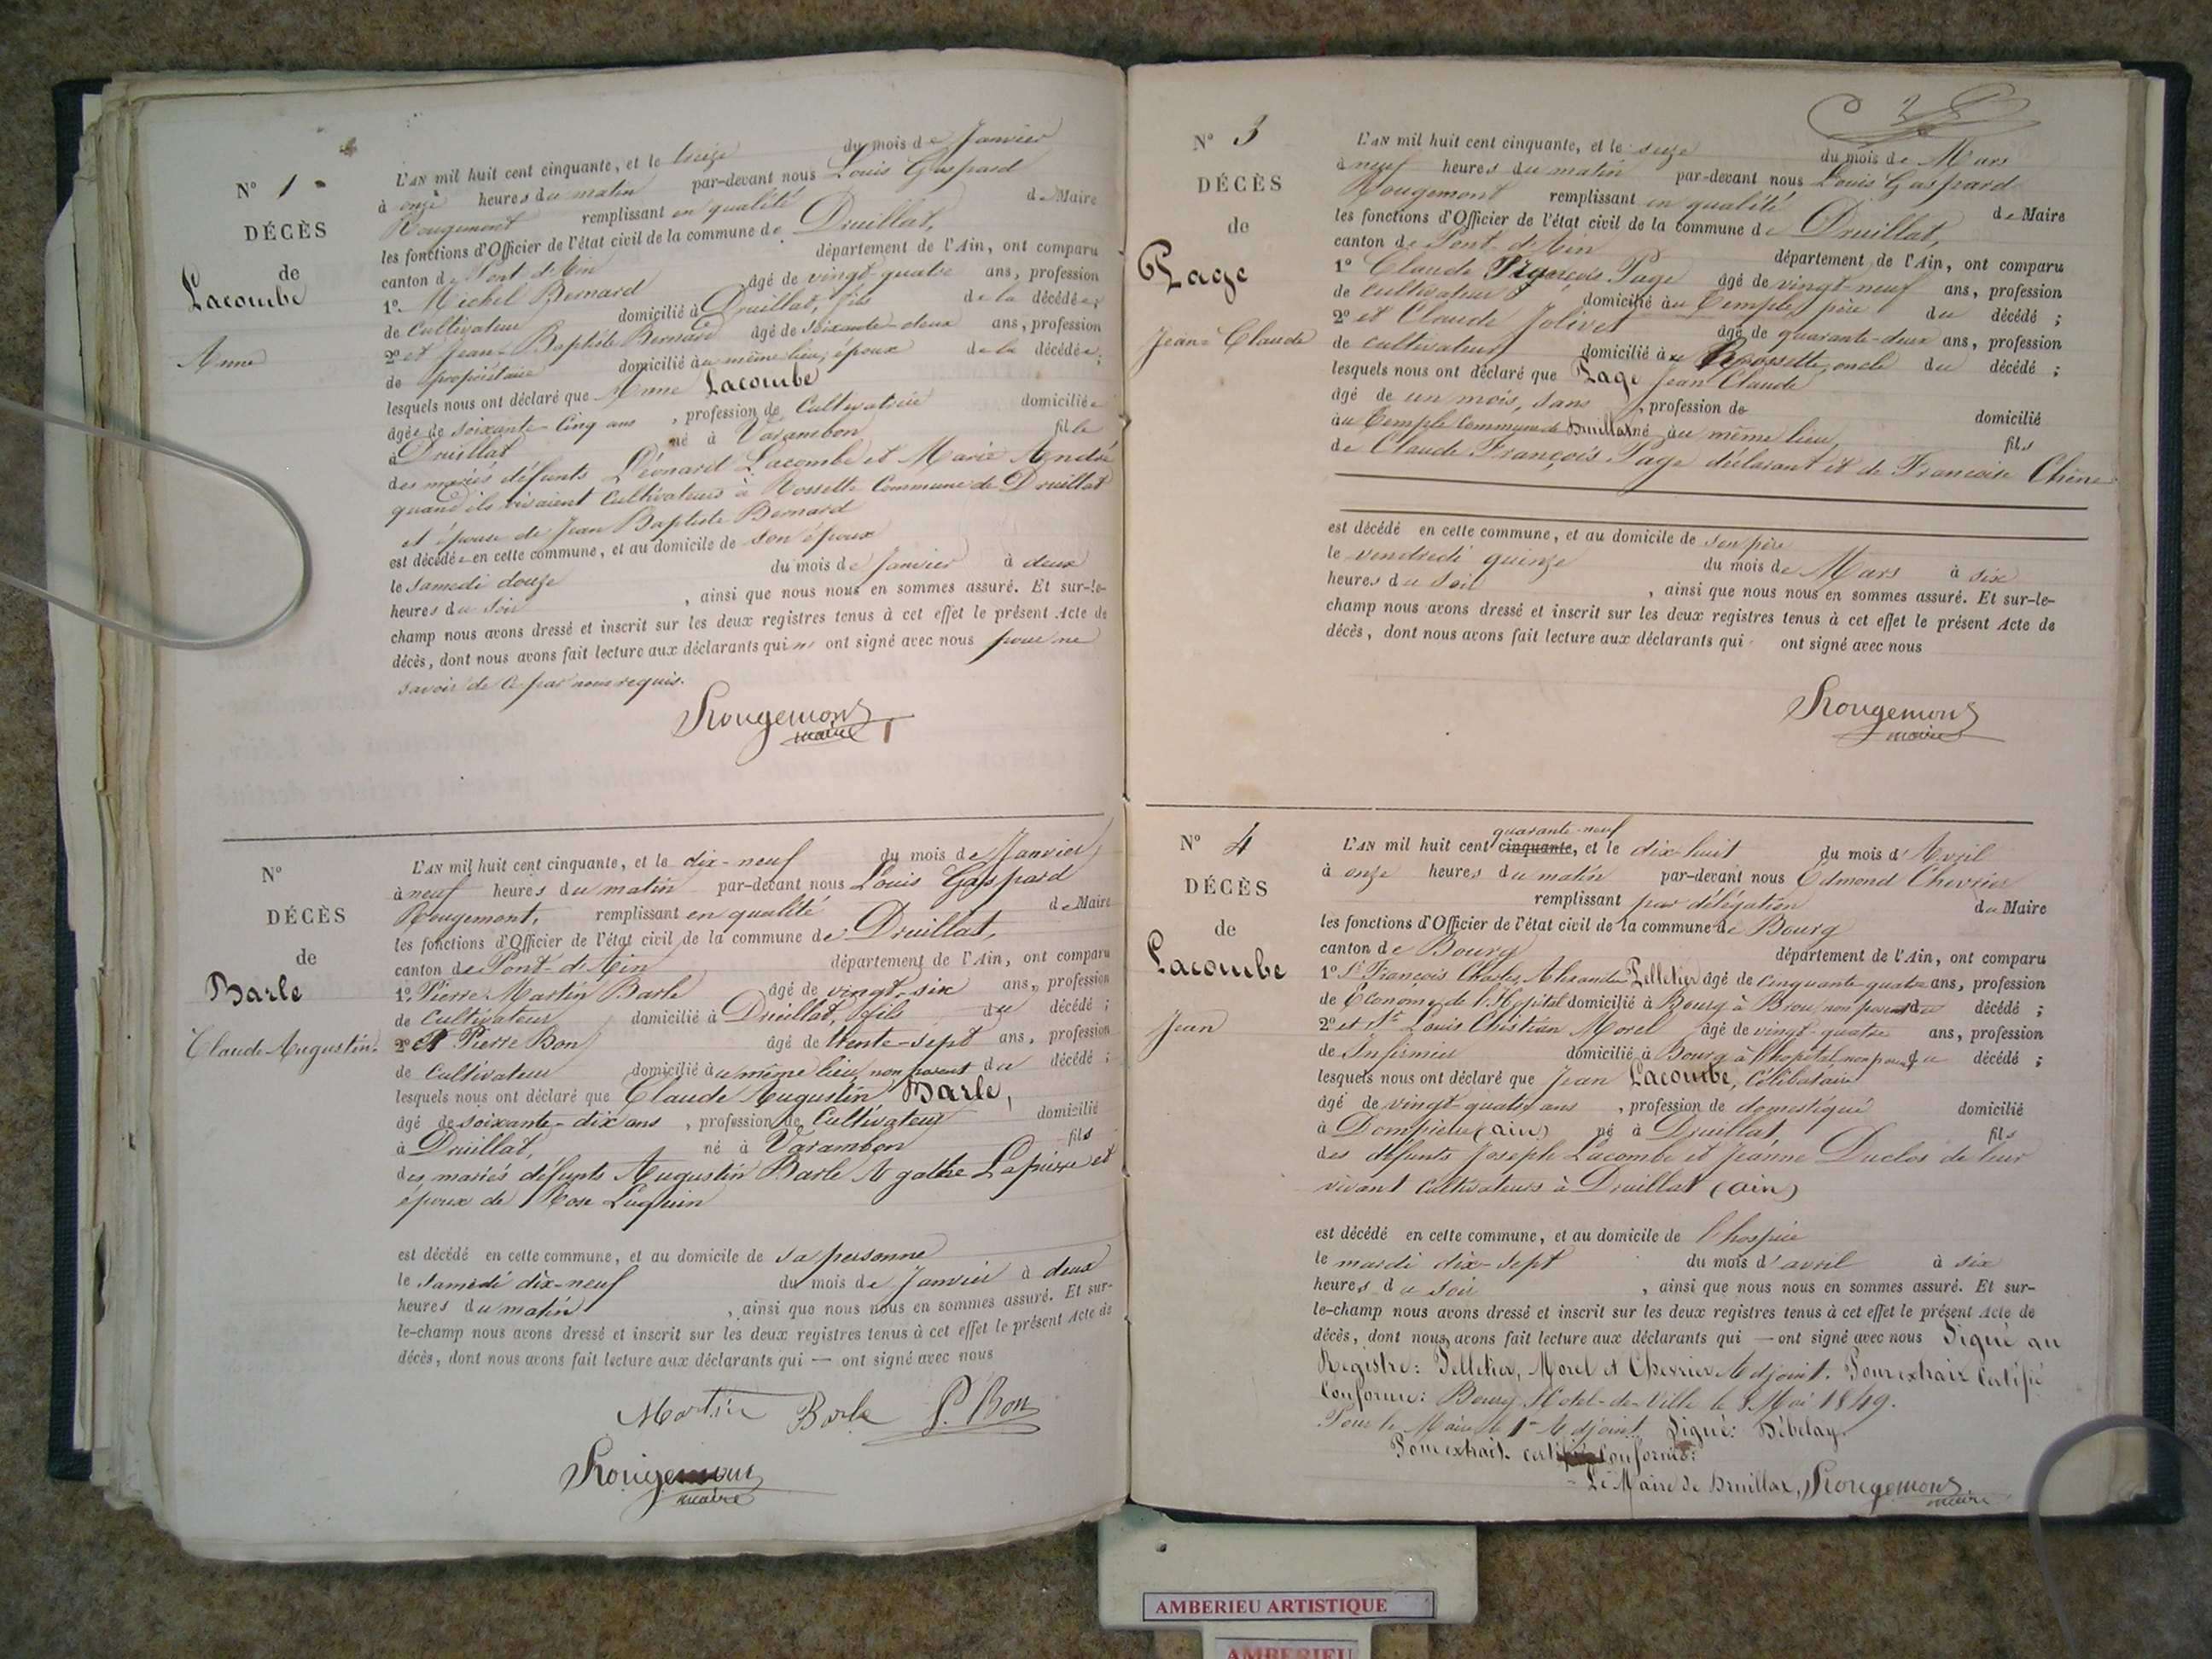 N° 1
DÉCÈS
de
Lacombe
Anne
L'AN mil huit cent cinquante, et le treize du mois de Janvier
à onze heures du matin par-devant nous Louis Gaspard
Rougemont remplissant en qualité de Maire
les fonctions d'Officier de l'état civil de la commune de Druillat,
canton de Pont d'Ain département de l'Ain, ont comparu
1° Michel Bernard âgé de vingt-quatre ans, profession
de Cultivateur domicilié à Druillat, fils de la décédée;
2° et Jean-Baptiste Bernard âgé de soixante-deux ans, profession
de propriétaire domicilié au même lieu, époux de la décédée;
lesquels nous ont déclaré que Anne Lacombe
âgée de soixante-cinq ans, profession de Cultivatrice domiciliée
à Druillat né à Varambon fille
des mariés défunts Léonard Lacombe et Marie André
quand ils vivaient Cultivateurs à Rossette Commune de Druillat
et épouse de Jean Baptiste Bernard
est décédée en cette commune, et au domicile de son époux
le samedi douze du mois de Janvier à deux
heures du soir, ainsi que nous nous en sommes assuré. Et sur-le-
champ nous avons dressé et inscrit sur les deux registres tenus à cet effet le présent Acte de
décès, dont nous avons fait lecture aux déclarants qui n' ont signé avec nous pour ne
savoir de ce par nous requis.
Rougemont
maire
N°
DÉCÈS
de
Barle
Claude Augustin.
L'AN mil huit cent cinquante, et le dix-neuf du mois de Janvier
à neuf heures du matin par-devant nous Louis Gaspard
Rougemont, remplissant en qualité de Maire
les fonctions d'Officier de l'état civil de la commune de Druillat,
canton de Pont-d'Ain département de l'Ain, ont comparu
1° Pierre Martin Barle âgé de vingt-six ans, profession
de Cultivateur domicilié à Druillat, fils du décédé;
2° et Pierre Bon âgé de trente-sept ans, profession
de Cultivateur domicilié au même lieu, non parent du décédé;
lesquels nous ont déclaré que Claude Augustin Barle,
âgé de soixante-dix ans, profession de Cultivateur domicilié
à Druillat, né à Varambon fils
des mariés défunts Augustin Barle Agathe Lapierre et
époux de Rose Luquin
est décédé en cette commune, et au domicile de sa personne
le Samedi dix-neuf du mois de Janvier à deux
heures du matin, ainsi que nous nous en sommes assuré. Et sur-
le-champ nous avons dressé et inscrit sur les deux registres tenus à cet effet le présent Acte de
décès, dont nous avons fait lecture aux déclarants qui — ont signé avec nous
Martin Barle P. Bon
Rougemont
maire
2
N° 3
DÉCÈS
de
Page
Jean-Claude
L'AN mil huit cent cinquante, et le seize du mois de Mars
à neuf heures du matin par-devant nous Louis Gaspard
Rougemont remplissant en qualité de Maire
les fonctions d'Officier de l'état civil de la commune de Druillat,
canton de Pont-d'Ain département de l'Ain, ont comparu
1° Claude François Page âgé de vingt-neuf ans, profession
de Cultivateur domicilié au Temple, père du décédé;
2° et Claude Jolivet âgé de quarante-deux ans, profession
de cultivateur domicilié à Rossette oncle du décédé;
lesquels nous ont déclaré que Page Jean Claude
âgé de un mois, sans, profession de domicilié
au Temple Commune de Druillat né au même lieu, fils
de Claude François Page déclarant et de Francoise Chêne
est décédé en cette commune, et au domicile de son père
le vendredi quinze du mois de Mars à six
heures du soir, ainsi que nous nous en sommes assuré. Et sur-le-
champ nous avons dressé et inscrit sur les deux registres tenus à cet effet le présent Acte de
décès, dont nous avons fait lecture aux déclarants qui ont signé avec nous
Rougemont
maire
N° 4
DÉCÈS
de
Lacombe
Jean
quarante-neuf
L'AN mil huit cent cinquante, et le dix-huit du mois d'Avril
à onze heures du matin par-devant nous Edmond Chevrier
remplissant par délégation du Maire
les fonctions d'Officier de l'état civil de la commune de Bourg
canton de Bourg département de l'Ain, ont comparu
1° Sr François Charles Alexandre Pelletier âgé de cinquante-quatre ans, profession
de Économe de l'Hopital domicilié à Bourg à Brou, non parent du décédé;
2° et Sr Louis Christian Morel âgé de vingt-quatre ans, profession
de Infirmier domicilié à Bourg à l'hopital non parent du décédé;
lesquels nous ont déclaré que Jean Lacombe, Célibataire
âgé de vingt-quatre ans, profession de domestique domicilié
à Dompierre (ain) né à Druillat fils
des défunts Joseph Lacombe et Jeanne Duclos de leur
vivant Cultivateurs à Druillat (ain)
est décédé en cette commune, et au domicile de l'hospice
le mardi dix-sept du mois d'avril à six
heures du soir, ainsi que nous nous en sommes assuré. Et sur-
le-champ nous avons dressé et inscrit sur les deux registres tenus à cet effet le présent Acte de
décès, dont nous avons fait lecture aux déclarants qui — ont signé avec nous Signé au
Registre: Pelletier, Morel et Chevrier Adjoint. Pour extrait Certifié
Conforme: Bourg Hotel-de-Ville le 8 Mai 1849.
Pour le Maire le 1er Adjoint Signé: Débelay.
Pour extrait certifié Conforme:
Le Maire de Druillat, Rougemont
maire
AMBERIEU ARTISTIQUE
AMBERIEU